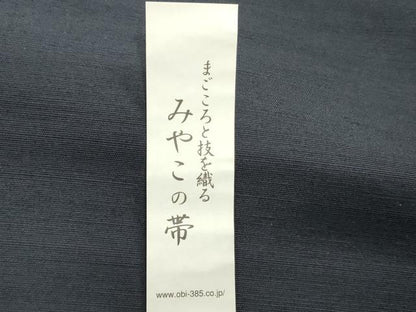 まごころと技を織る
みやこの帯
www.obi-385.co.jp/